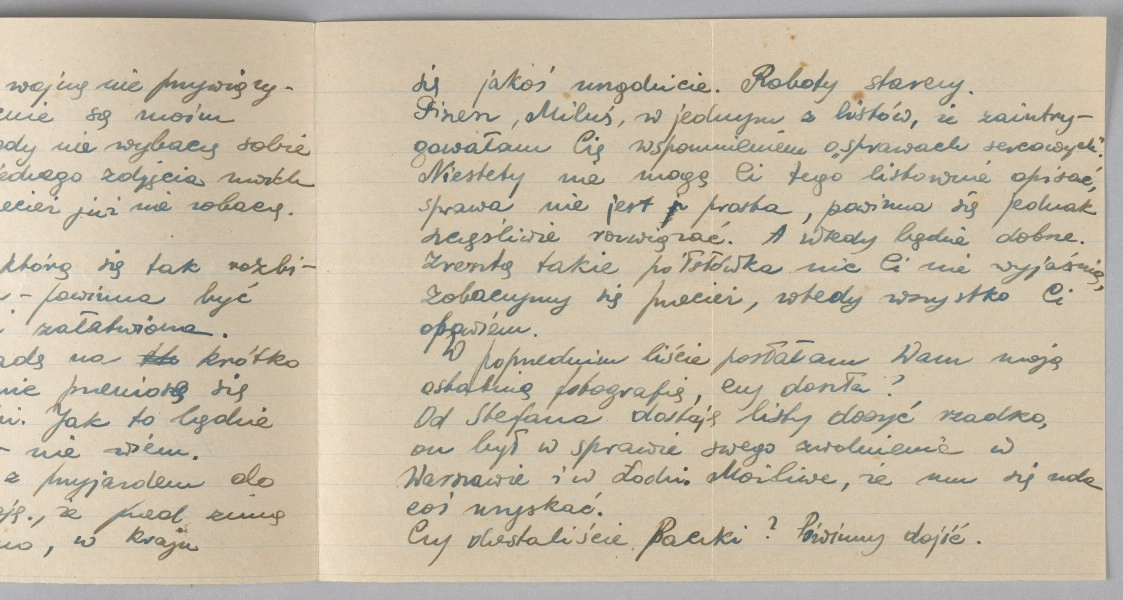 wojnę nie przywięzy-
się moim
nie wybaczę sobie
zdjęcia moich
już nie zobaczę.
którą się tak rozbi-
- powinna być
załatwiona.
na krótko
przeniosę się
Jak to będzie
- nie wiem.
z przyjazdem do
że przed zimą
, w kraju
się jakoś urządzicie. Roboty starczy.
Piszesz, Miluś, w jednym z listów, że zaintry-
gowałam Cię wspomnieniem o „sprawach sercowych".
Niestety nie mogę Ci tego listownie opisać,
sprawa nie jest prosta, powinna się jednak
szczęśliwie rozwiązać. A wtedy będzie dobrze.
Zresztą takie półsłówka nic Ci nie wyjaśnią,
zobaczymy się przecież, wtedy wszystko Ci
opowiem.
W poprzednim liście posłałam Wam moją
ostatnią fotografię, czy doszła?
Od Stefana dostaję listy dosyć rzadko,
on był w sprawie swego zwolnienia w
Warszawie i w Łodzi. Możliwe, że mu się uda
coś uzyskać.
Czy dostaliście Paczki? Powinny dojść.